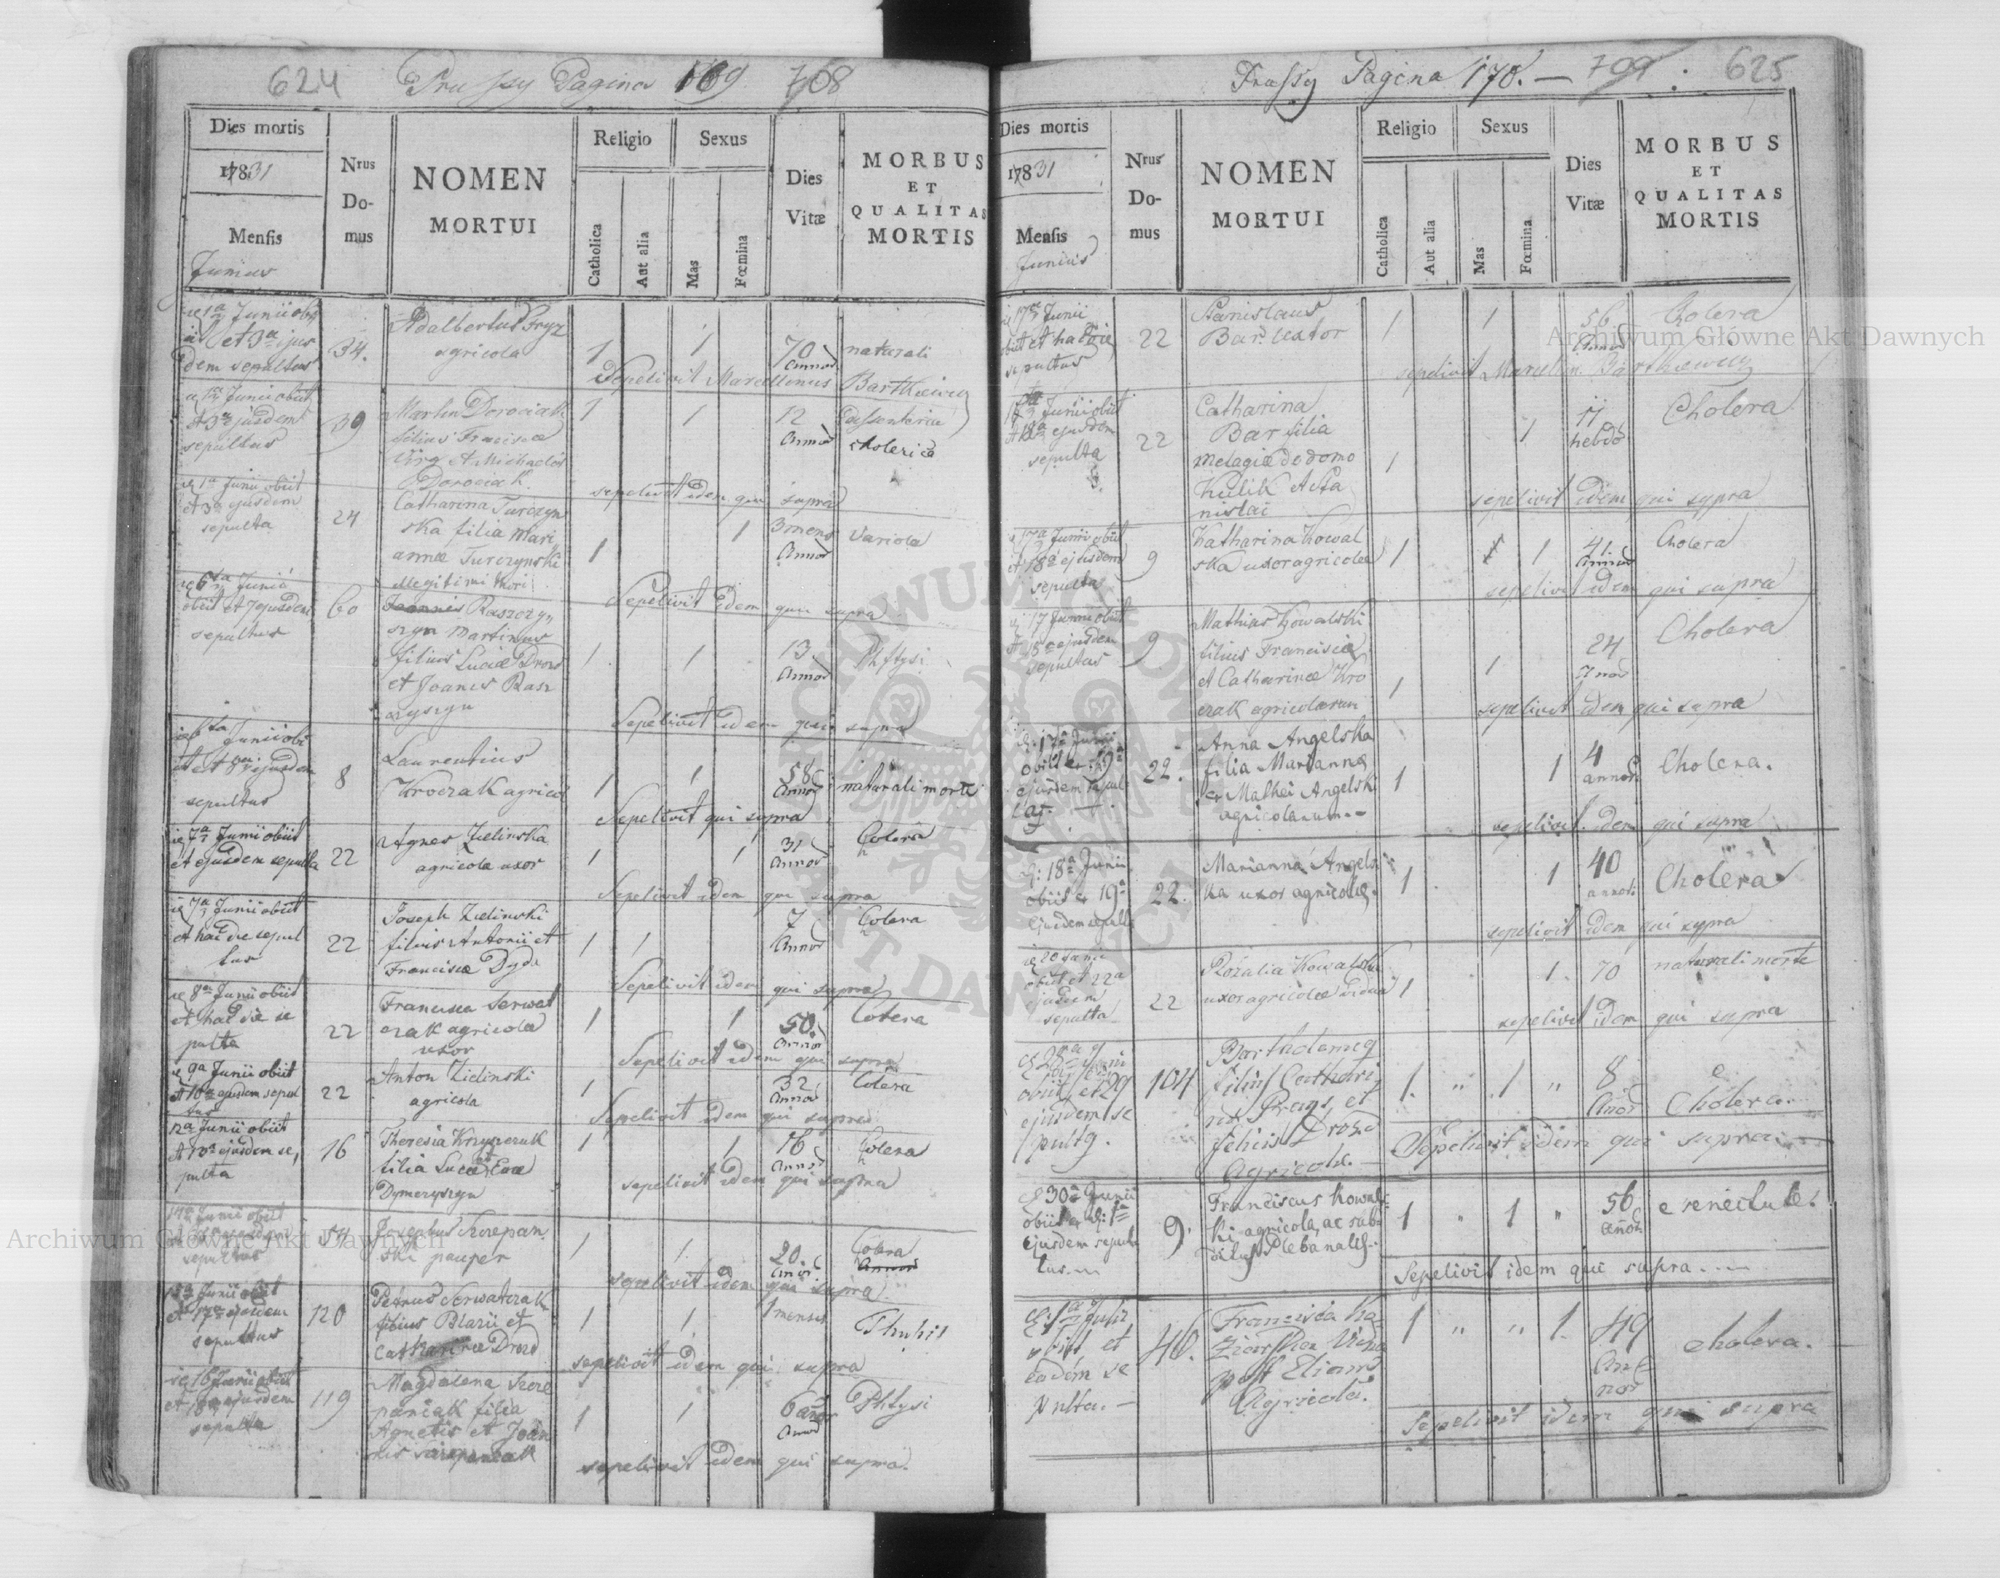 624 Prussy Pagina 169 708
Dies mortis
1831
Mensis
Junius
Nrus Domus
NOMEN
MORTUI
Religio
Catholica
Aut alia
Sexus
Mas
Fœmina
Dies
Vitæ
MORBUS
ET
QUALITAS
MORTIS
1a Junii obiit
et 3a ejus
dem sepultus
34.
Adalbertus Fryz
agricola
1 1
70
annor
naturali
Sepelivit Marcellinus Bartkiewicz
1a Junii obiit
et 3a ejusdem
sepultus
39
Martin Dorociak
filius Francisca
et Michaelis
Dorociak
1 1
12
annor
Dyssenteria
cholerica
sepelivit idem qui supra
1a Junii obiit
et 3a ejusdem
sepulta
24
Catharina Turczyn
ska filia Mari
annæ Turczynski
illegitimi thori
1 1
3 mens
Annor
Variola
Sepelivit idem qui supra
6ta Junii
obiit et 7 ejusdem
sepultus
60
Joannis Raszczy
szyn Martinus
filius Luciæ Drozd
et Joanis Rasz
czyszyn
1 1
13
annor
Phtysi
Sepelivit idem qui supra
6ta Junii obi
it et ejusdem
sepultus
8
Laurentius
Kroczak agricol
1 1
58
Annor
naturali morte
Sepelivit qui supra
7a Junii obiit
et ejusdem sepulta
22
Agnes Zielinska
agricolæ uxor
1 1
31
Annor
Colera
Sepelivit idem qui supra
7a Junii obiit
et hac die sepul
tus
22
Joseph Zielinski
filius Antonii et
Franciscæ Dyda
1 1
7
Annor
Colera
Sepelivit idem qui supra
8a Junii obiit
et hac die se
pulta
22
Francisca Serwat
czak agricolæ
uxor
1 1
50.
Annor
Colera
Sepelivit idem qui supra
9a Junii obiit
et 10a ejusdem sepul
tus
22
Anton Zielinski
agricola
1
32
Annor
Colera
Sepelivit idem qui supra
12a Junii obiit
et ejusdem se
pulta
16
Theresia Krzyszczuk
filia Lucæ et Evæ
Dymczyszyn
1 1
16
Annor
Colera
sepelivit idem qui supra
14a Junii obiit
sepultus
54
Szczepan
ski pauper
1 1
20.
Annor
Colera
Annor
sepelivit idem qui supra
15a Junii obiit
et 17a ejusdem
sepultus
120
Petrus Serwatczak
filius Blazii et
Catharinæ Drozd
1 1
1 mensis
sepelivit idem qui supra
16 Junii obiit
et 18a ejusdem
sepulta
119
Magdalena Szcze
paniak filia
Agnetis et Joan
nis Szczepaniak
1 1
6 anor
Annor
Phtysi
sepelivit idem qui supra.
Prussy Pagina 170. — 709. 625
Dies mortis
1831
Mensis
Junius
Nrus Domus
NOMEN
MORTUI
Religio
Catholica
Aut alia
Sexus
Mas
Fœmina
Dies
Vitæ
MORBUS
ET
QUALITAS
MORTIS
17a Junii
obiit et hac die
sepultus
22
Stanislaus
Bar textor
1 1
56
annor
Cholera
sepelivit Marcellin Barthkiewicz
Junii obiit
et 18a ejusdem
sepulta
22
Catharina
Bar filia
Melagiæ de domo
Kulik et Sta
nislai
1 1
11
hebdo
Cholera
sepelivit idem qui supra
17a Junii obiit
et 18a ejusdem
sepulta
9
Katharina Kowal
ska uxor agricolæ
1 1
41
annor
Cholera
sepelivit idem qui supra
17 Junii obiit
et ejusdem
sepultus
9
Mathias Kowalski
filius Francisci
et Catharinæ Kro
czak agricolarum
1 1
24
Cholera
sepelivit idem qui supra
17a Junii
obiit et 19a
ejusdem sepul
ta.
22.
Anna Angelska
filia Marianna
et Mathei Angelski
agricolarum
1 1
4
annor.
Cholera.
sepelivit idem qui supra
18a Junii
obiit et 19a
ejusdem sepult
22.
Marianna Angels
ka uxor agricolæ.
1 1
40
annor.
Cholera
sepelivit idem qui supra
20 Junii
obiit et 22a
ejusdem
sepulta
22
Rozalia Kowalska
uxor agricolæ vidua
1 1.
70
naturali morte
sepelivit idem qui supra
28a Junii
obiit et 29
ejusdem se
pultg.
104
Bartholomeg
filius Cathari
næ Prus et
Felicis Drozd
Agricolæ.
1. " 1 "
8
Anor
e
Cholera.
Sepelivit idem qui supra
30a Junii
obiit et 1a
ejusdem sepul
tus
9.
Franciscus Kowals
ki agricola, ac sub
ditus Plebanalis.
1 " 1 "
56
anor.
e senectute.
Sepelivit idem qui supra.
1a Julii
obiit et
eadem se
pulta.
46.
Francisca
Vidua
post Eliam
Agricola.
1 " " 1.
49
An
nor
cholera.
Sepelivit idem qui supra
Archiwum Główne Akt Dawnych
Archiwum Główne Akt Dawnych
ARCHIWUM GŁÓWNE AKT DAWNYCH